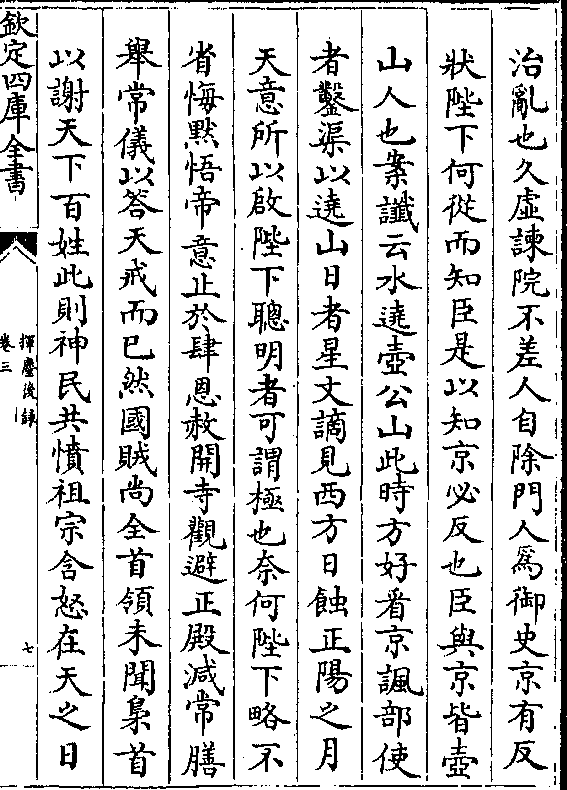 治亂也久虛諫院不差人自除門人爲御史京有反
狀陛下何從而知臣是以知京必反也臣與京皆壺
山人也案讖云水遶壺公山此時方好看京諷部使
者鑿渠以遶山日者星文謫見西方日蝕正陽之月
天意所以啟陛下聰明者可謂極也奈何陛下略不
省悔默悟帝意止於肆恩赦開寺觀避正殿減常膳
舉常儀以答天戒而已然國賊尚全首領未聞梟首
以謝天下百姓此則神民共憤祖宗含怒在天之日
欽定四庫全書
揮麈後錄
卷三
七